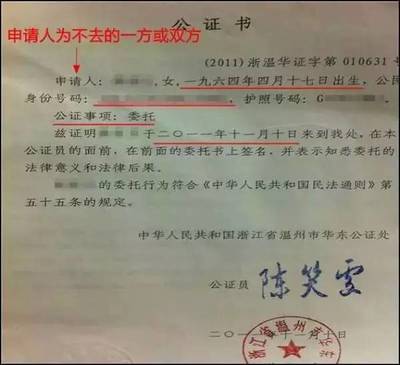 公证书
申请人为不去的一方或双方
(2011)浙温华证字第010631号
申请人：女，一九六四年四月十七日出生，公民
身份号码：，护照号码：G
公证事项：委托
兹证明于二〇一一年十一月十日来到我处，在本
公证员的面前，在前面的委托书上签名，并表示知悉委托的
法律意义和法律后果。
的委托行为符合《中华人民共和国民法通则》第
五十五条的规定。
中华人民共和国浙江省温州市华东公证处
公证员 陈笑雯
二〇一一年十一月十日
浙江省温州市华东